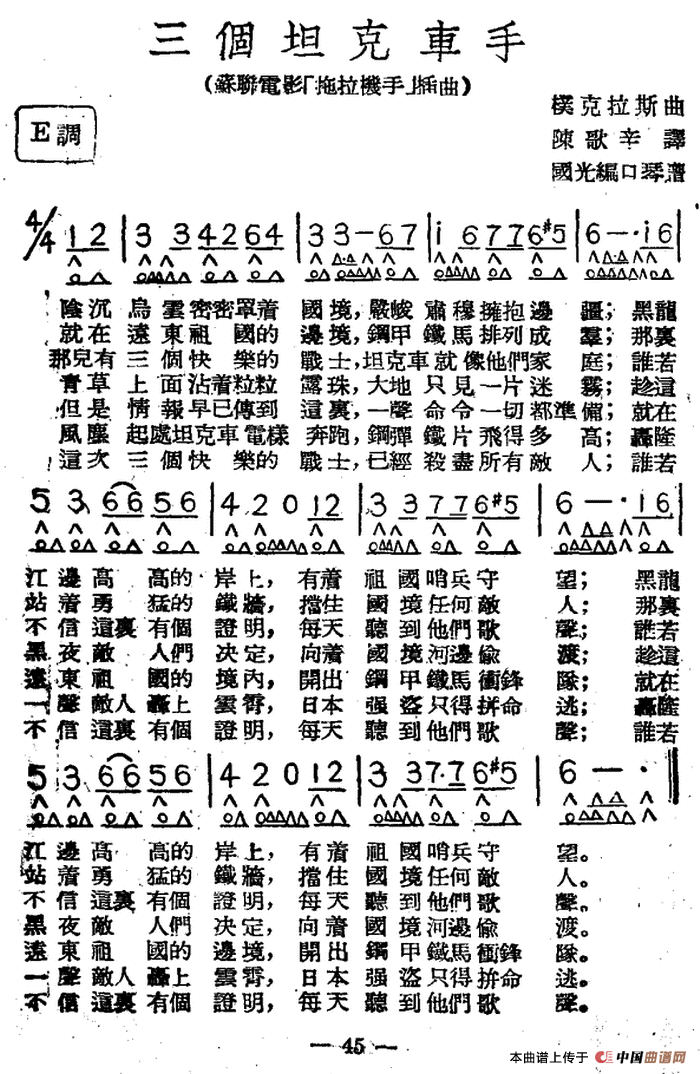 三個坦克車手
(蘇聯電影「拖拉機手」插曲)
E調
樸克拉斯曲
陳歌辛譯
國光編口琴譜
4/4 1 2 | 3 3 3 4 2 6 4 | 3 3 — 6 7 | i 6 7 7 6 #5 | 6 — · i 6
陰沉烏雲密密罩着國境，嚴峻肅穆擁抱邊疆；黑龍
就在遠東祖國的邊境，鋼甲鐵馬排列成羣；那裏
那兒有三個快樂的戰士，坦克車就像他們家庭；誰若
青草上面沾着粒粒露珠，大地只見一片迷霧；趁這
但是情報早已傳到這裏，一聲命令一切都準備；就在
風塵起處坦克車電樣奔跑，鋼彈鐵片飛得多高；轟隆
這次三個快樂的戰士，已經殺盡所有敵人；誰若
5 3 · 6 6 5 6 | 4 2 0 1 2 | 3 3 3 7 7 6 #5 | 6 — · i 6
江邊高高的岸上，有着祖國哨兵守望；黑龍
站着勇猛的鐵牆，擋住國境任何敵人；那裏
不信這裏有個證明，每天聽到他們歌聲；誰若
黑夜敵人們决定，向着國境河邊偷渡；趁這
遠東祖國的境內，開出鋼甲鐵馬衝鋒隊；就在
一聲敵人轟上雲霄，日本强盗只得拼命逃；轟隆
不信這裏有個證明，每天聽到他們歌聲；誰若
5 3 · 6 6 5 6 | 4 2 0 1 2 | 3 3 3 7 · 7 6 #5 | 6 — ·
江邊高高的岸上，有着祖國哨兵守望。
站着勇猛的鐵牆，擋住國境任何敵人。
不信這裏有個證明，每天聽到他們歌聲。
黑夜敵人們决定，向着國境河邊偷渡。
遠東祖國的邊境，開出鋼甲鐵馬衝鋒隊。
一聲敵人轟上雲霄，日本强盗只得拼命逃。
不信這裏有個證明，每天聽到他們歌聲。
— 45 —
本曲谱上传于 中国曲谱网